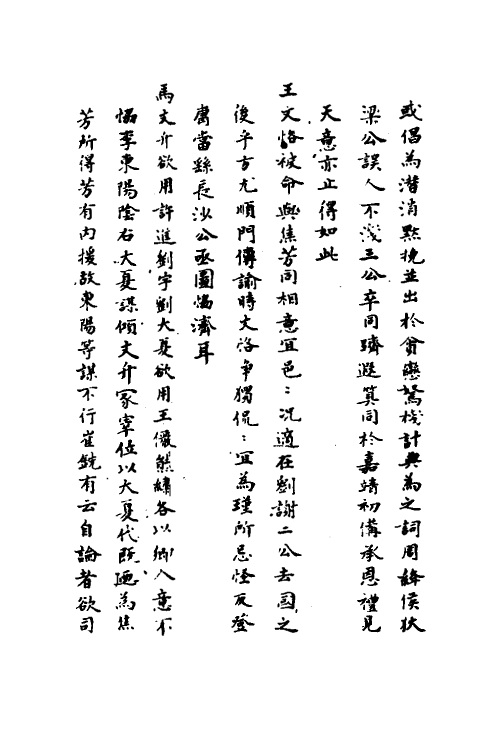 或倡為潛消默挽並出於貪戀駑棧計與為之詞周絳侯狄
梁公誤人不淺王公卒同躋遐算同於嘉靖初備承恩禮見
天意亦止得如此
王文恪被命與焦芳同相意宜邑〻况適在劉謝二公去國之
後乎方尤順門傳諭時文恪争獨侃〻宜為瑾所忌怪反登
庸當繇長沙公亟圖㣲濟耳
馬文升欲用許進劉宇劉大夏欲用王儼熊繡各以鄉人意不
惬李東陽陰右大夏謀傾文升冢宰位以大夏代既廼為焦
芳所得芳有内援故東陽等謀不行崔銑有云自論者欲司